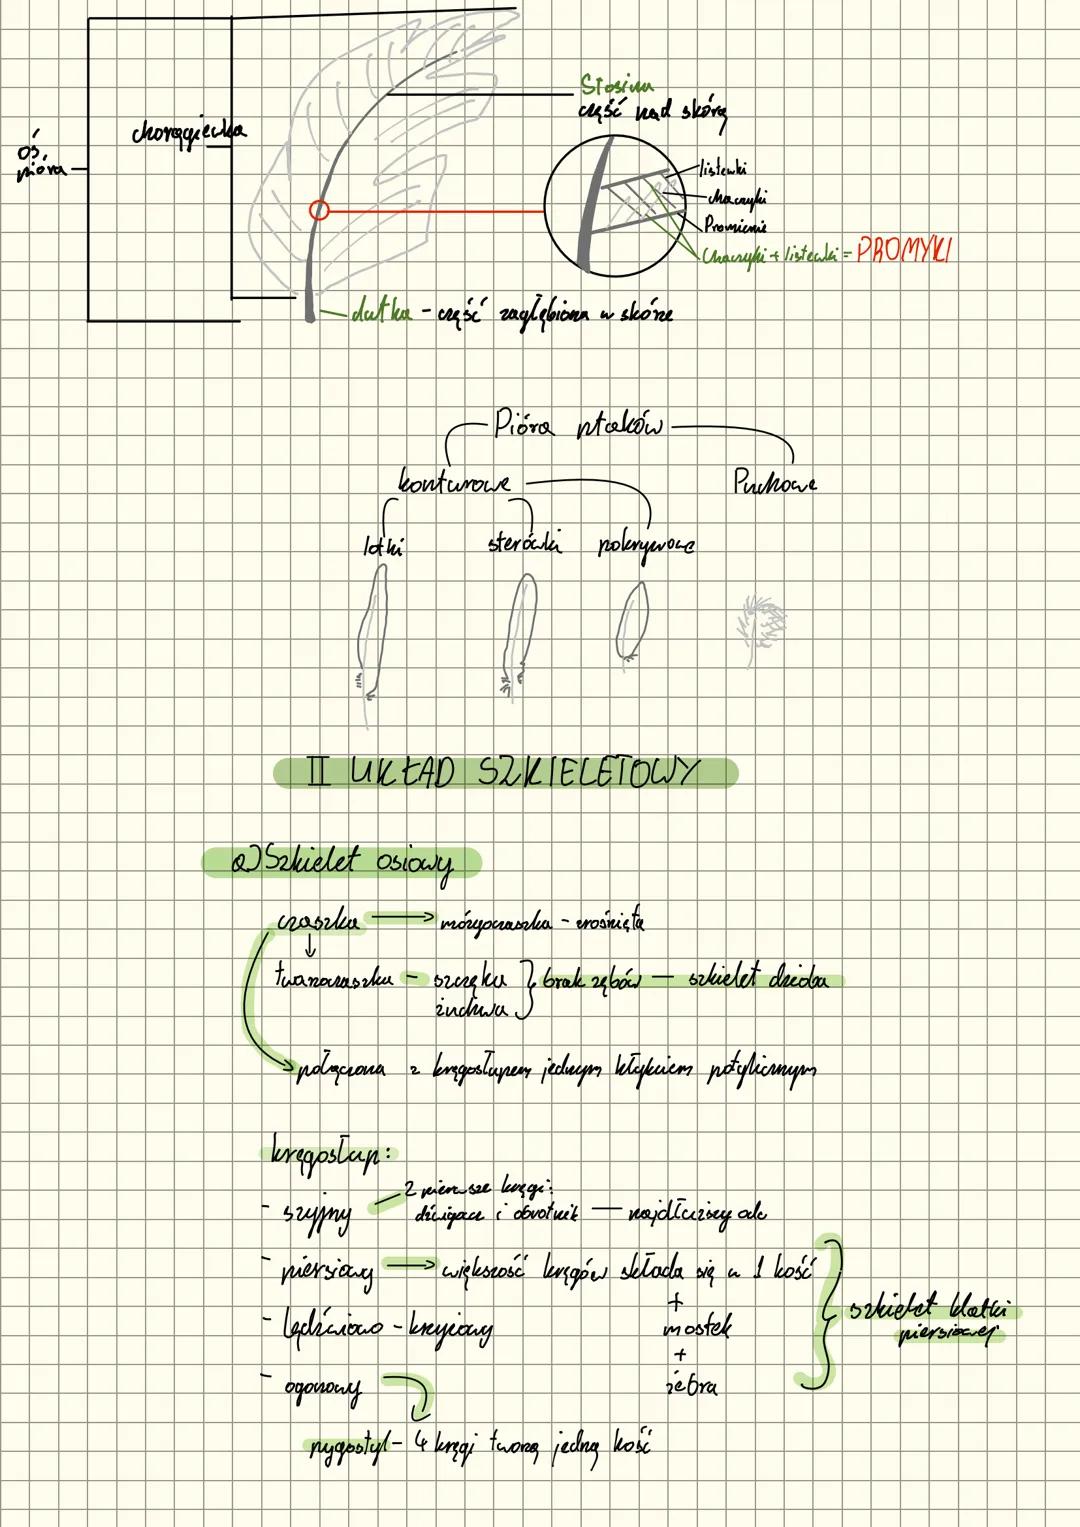 Stosina
część nad skórą
chorągiewka
oś
pióra
listewki
haczyki
Promienie
haczyki + listewki = PROMYKI
dutka - część zagłębiona w skórze
Pióra ptaków
konturowe
Puchowe
lotki
sterówki
pokrywowe
II UKŁAD SZKIELETOWY
a) Szkielet osiowy
czaszka → mózgoczaszka - zrośnięta
twarzoczaszka - szczęka
żuchwa
} brak zębów — szkielet dzioba
połączona z kręgosłupem jednym kłykciem potylicznym
kręgosłup:
2 pierwsze kręgi:
- szyjny
dźwigacz i obrotnik — najdłuższy odc
- piersiowy → większość kręgów składa się w 1 kość
+
- lędźwiowo - krzyżowy
mostek
+
żebra
szkielet klatki
piersiowej
- ogonowy
pygostyl - 4 kręgi tworzą jedną kość